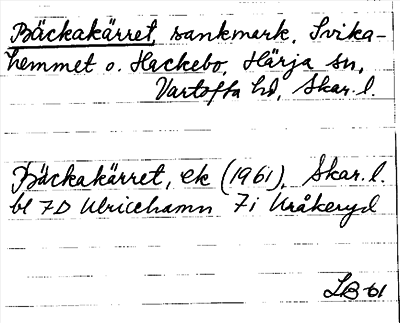 Bäckakärret, sankmark, Svika-
hemmet o. Hackebo, Härja sn,
Vartofta hd, Skar. l.
Bäckakärret, ek (1961), Skar. l.
bl 7D Ulricehamn 7i Kråkeryd
LB-61